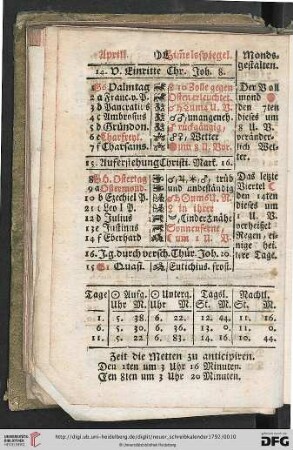 Aprill. Himelsspiegel. Monds-
gestalten.
14. V. Einritte Chr. Joh. 8.
Palmtag 20 Zolle gegen
2 a Franc. v. P. Osten erleuchtet.
3 b Pancratius
4 c Ambrosius unangeneh.
5 d Gründon. rückgängig
6 e Charfreyt. Wetter
7 f Charsams. um 8 U. Vor.
Der Voll
mond
den 7ten
dieses um
8 U. V.
verändert
sich Wet-
ter.
15. Auferstehung Christi. Mark. 16.
8 H. Ostertag trüb
9 a Ostermond. und unbeständig
10 b Ezechiel P.
11 c Leo I. P. in ihrer
12 d Julius Erdernähe
13 e Justinus Sonnenferne,
14 f Eberhard um 1 U. V.
Das letzte
Viertel
den 14ten
dieses um
1 U. V.
verheißet
Regen, ei-
nige hei-
tere Tage.
16. J. g. durch versch. Thür. Joh. 20.
15 1 Quast. Eutichius. frost
Tage Aufg. Unterg. Tagsl. Nachtl.
Uhr M. Uhr M. St. M. St. M.
1. 5. 38. 6. 22. 12. 44. 11. 16.
6. 5. 30. 6. 36. 13. 0. 11. 0.
11. 5. 22 6. 83. 14. 16. 10. 44.
Zeit die Metten zu anticipiren.
Den 1ten um 3 Uhr 16 Minuten.
Den 8ten um 3 Uhr 20 Minuten.
http://digi.ub.uni-heidelberg.de/diglit/neuer_schreibkalender1792/0010
© Universitätsbibliothek Heidelberg
gefördert durch die
DFG